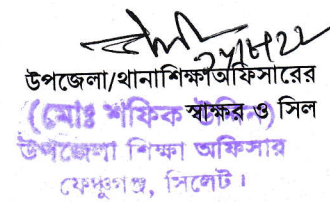 উপজেলা/থানাশিক্ষাঅফিসারের
স্বাক্ষর ও সিল
(মোঃ শফিক উদ্দিন)
উপজেলা শিক্ষা অফিসার
ফেঞ্চুগঞ্জ, সিলেট।